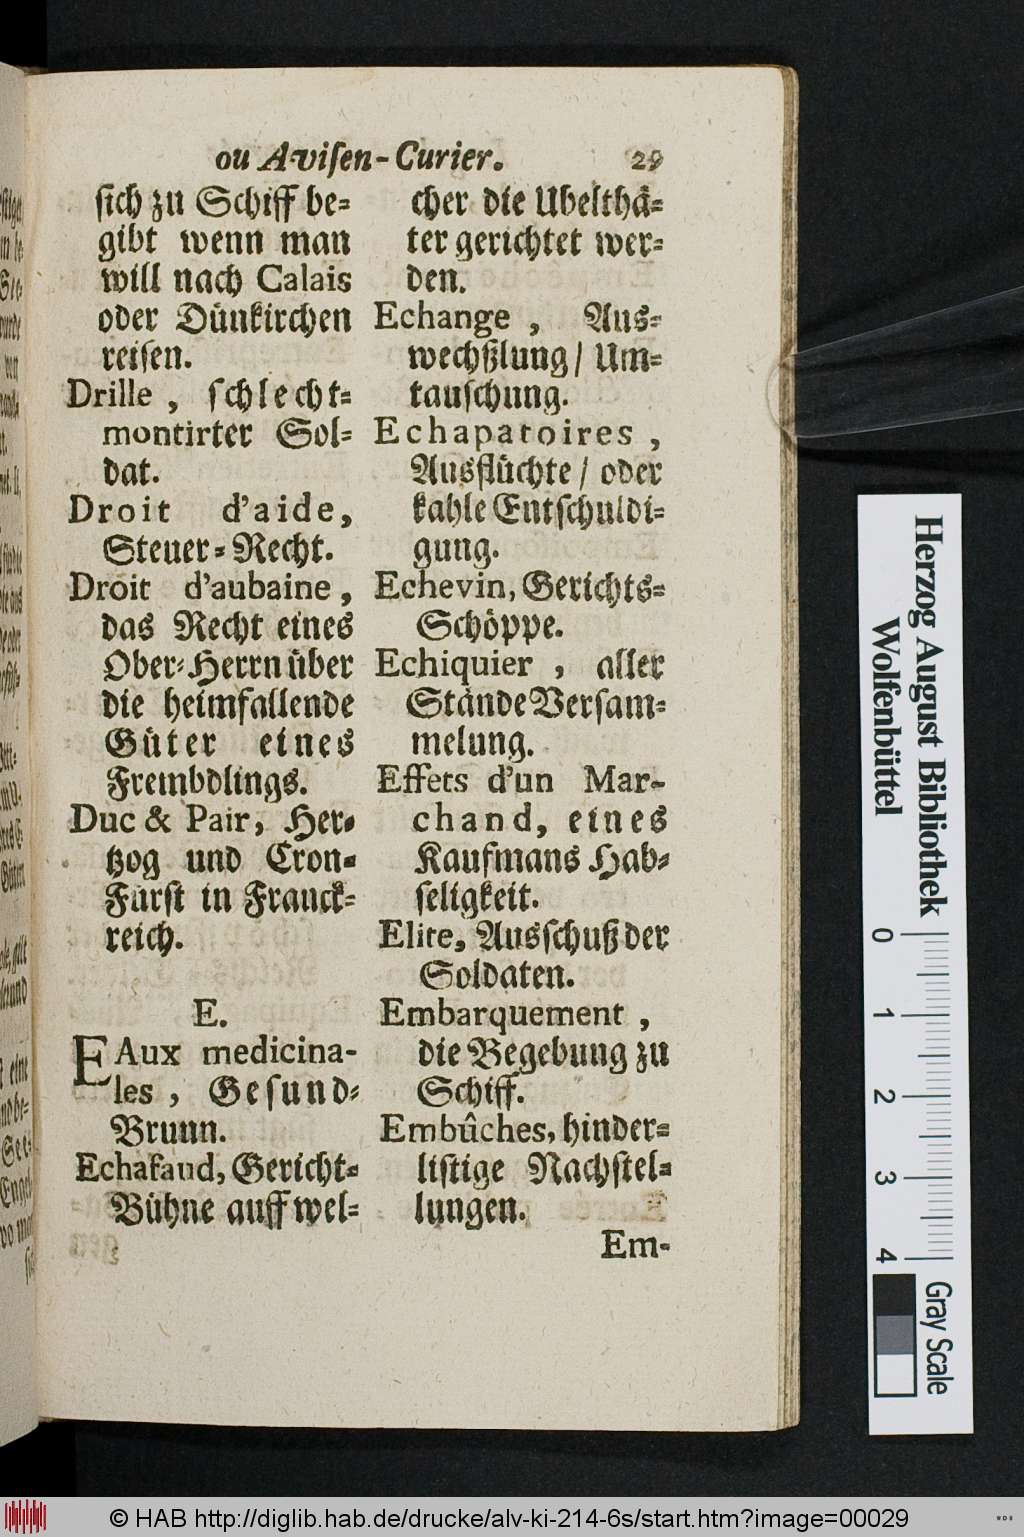 ou Avisen-Curier. 29
sich zu Schiff be-
gibt wenn man
will nach Calais
oder Dünkirchen
reisen.
Drille , schlecht-
montirter Sol-
dat.
Droit d'aide,
Steuer-Recht.
Droit d'aubaine ,
das Recht eines
Ober-Herrn über
die heimfallende
Güter eines
Frembdlings.
Duc & Pair, Her-
tzog und Cron-
Fürst in Franck-
reich.
E.
EAux medicina-
les , Gesund-
Brunn.
Echafaud, Gericht-
Bühne auff wel-
cher die Ubelthä-
ter gerichtet wer-
den.
Echange , Aus-
wechßlung / Um-
tauschung.
Echapatoires ,
Ausflüchte / oder
kahle Entschuldi-
gung.
Echevin, Gerichts-
Schöppe.
Echiquier , aller
Stände Versam-
melung.
Effets d'un Mar-
chand, eines
Kaufmans Hab-
seligkeit.
Elite, Ausschuß der
Soldaten.
Embarquement ,
die Begebung zu
Schiff.
Embûches, hinder-
listige Nachstel-
lungen.
Em-
Herzog August Bibliothek
Wolfenbüttel
0 1 2 3 4
Gray Scale
© HAB http://diglib.hab.de/drucke/alv-ki-214-6s/start.htm?image=00029